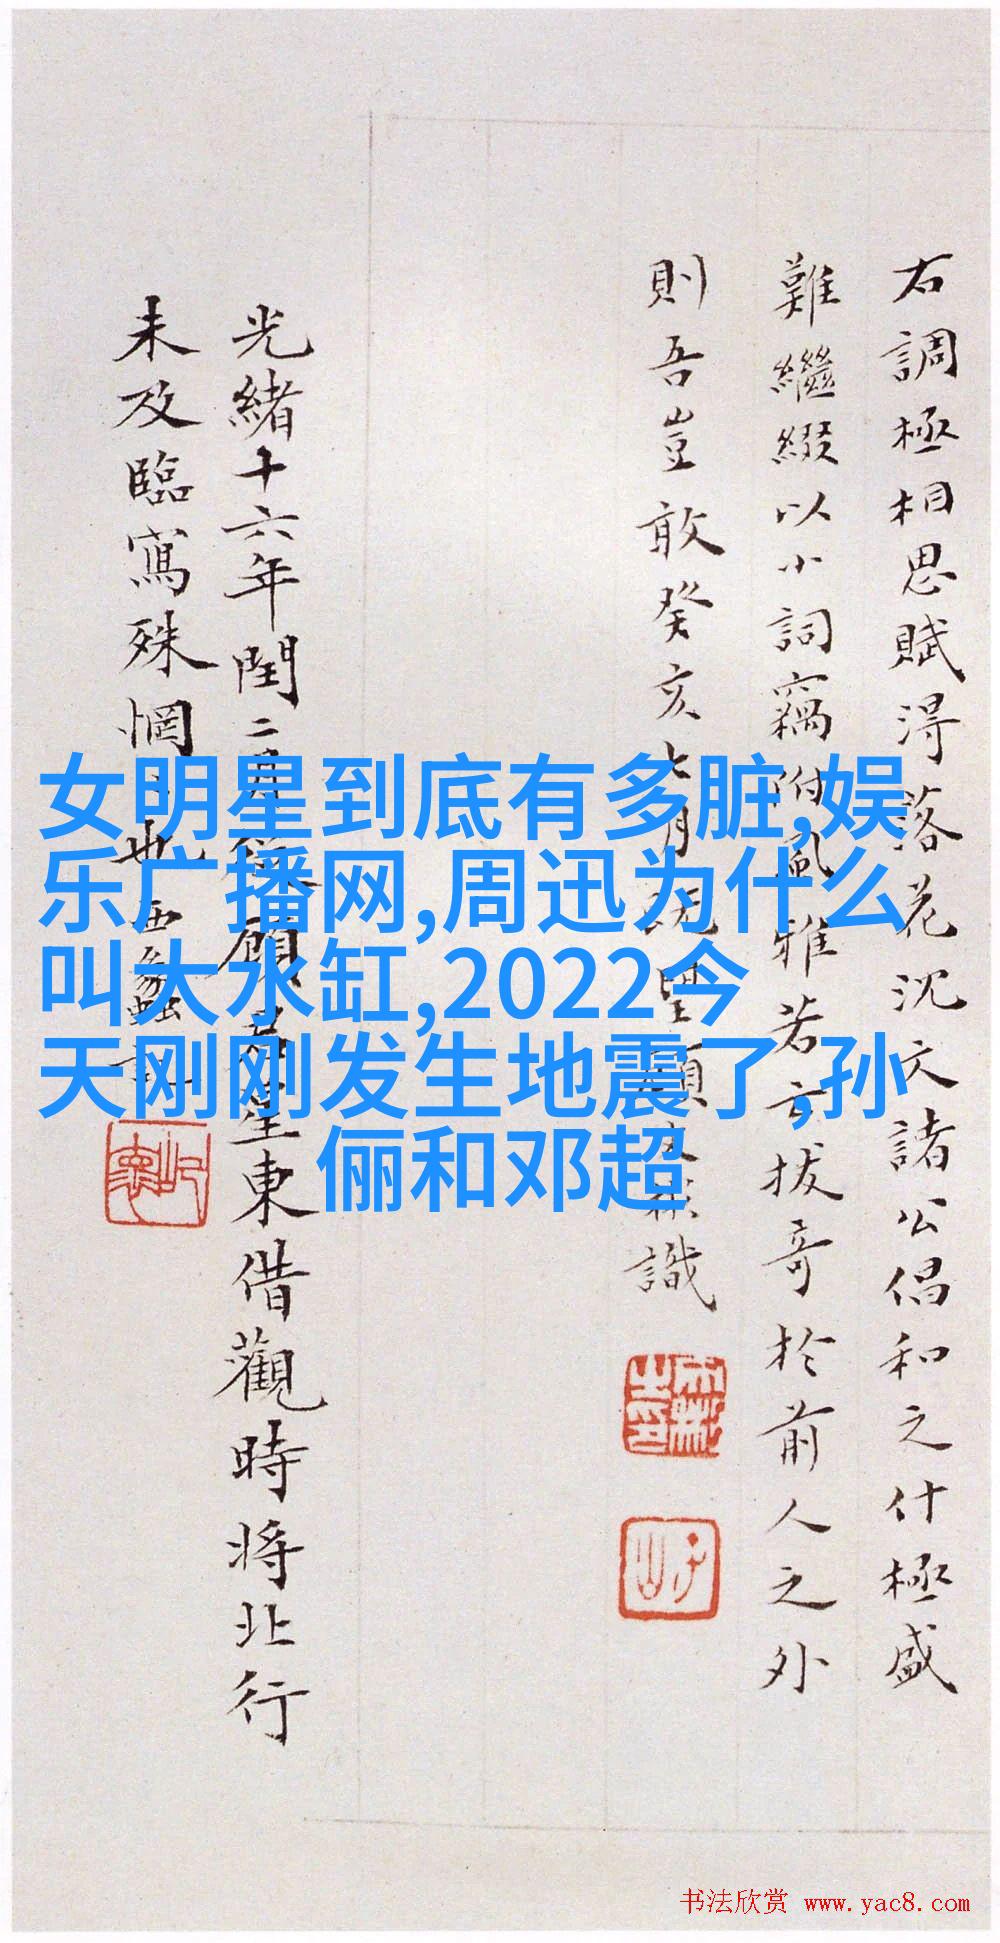 右調極相思賦得落花沈文諸公倡和之什極盛
難繼綴以小詞竊附風雅若云拔奇於前人之外
則吾豈敢癸亥七月既望顧文彬識
光緒十六年閏二月從顧若星東借觀時將北行
未及臨寫殊惘惘也西蠡記
女明星到底有多脏,娱
乐广播网,周迅为什么
叫大水缸,2022今
天刚刚发生地震了,孙
俪和邓超
书法欣赏 www.yac8.com